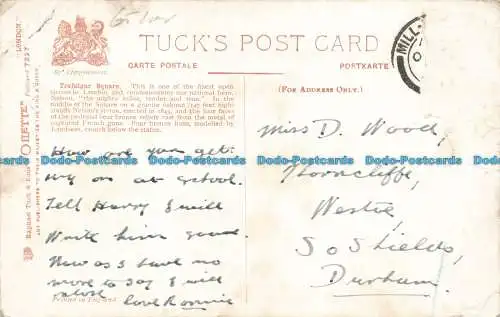 TUCK'S POST CARD
CARTE POSTALE
POSTKARTE
(FOR ADDRESS ONLY.)
Trafalgar Square. This is one of the finest open
spaces in London, and commemorates our national hero,
Nelson, "the mighty sailor, tender and true." In the
middle of the Square on a granite column 145 feet high
stands Nelson's statue, erected in 1843, and the four faces
of the pedestal bear bronze reliefs cast from the metal of
captured French guns. Four bronze lions, modelled by
Landseer, crouch below the statue.
How are you get-
ing on at school.
Tell Harry I will
write him soon.
Now as I have no
more to say I will
close love Ronnie
Miss D. Wood,
Thorncliffe,
Westoe,
So Shields,
Durham.
Printed in England
RAPHAEL TUCK & SONS' "OILETTE" POSTCARD 7227 "LONDON."
ART PUBLISHERS TO THEIR MAJESTIES THE KING & QUEEN.
MILL
Dodo-Postcards.com Dodo-Postcards.com Dodo-Postcards.com Dodo-Postcards.com
Dodo-Postcards.com Dodo-Postcards.com Dodo-Postcards.com Dodo-Postcards.com